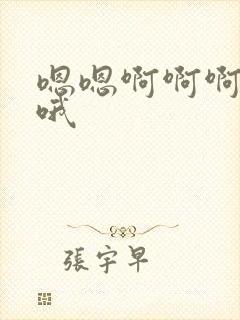 嗯嗯啊啊啊
哦
張宇早